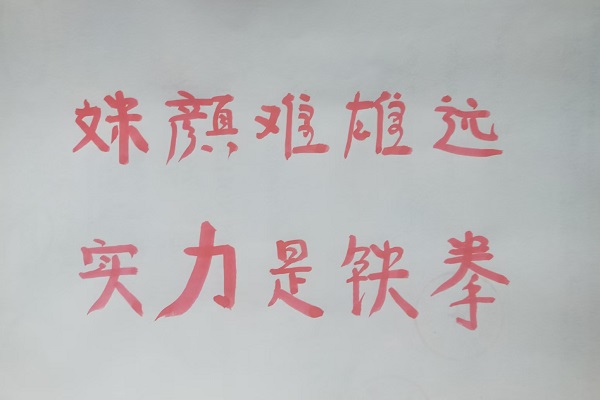 姝颜难雄远
实力是铁拳